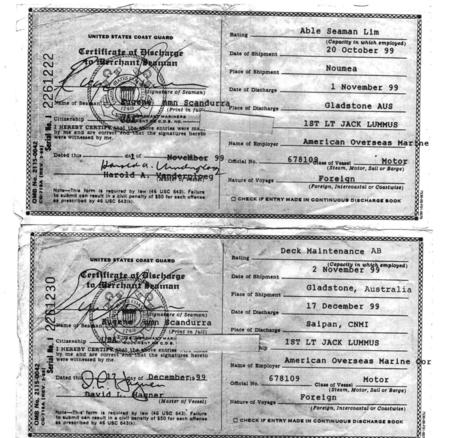 UNITED STATES COAST GUARD
Certificate of Discharge
to Merchant Seaman
(Signature of Seaman)
Name of Seaman Eugene Scandurra
(Print in full)
Citizenship
I HEREBY CERTIFY that the above entries were
by me and are correct and that the signatures hereto
were witnessed by me.
Dated this November 99
Harold A. Vanderploeg
Note—This form is required by law (46 USC 643). Failure
to submit can result in a civil penalty of $50 for each offense
as prescribed by 46 USC 643(k).
Serial No. 2261222
OMB No. 2115-0042
Rating Able Seaman Lim
(Capacity in which employed)
Date of Shipment 20 October 99
Place of Shipment Noumea
Date of Discharge 1 November 99
Place of Discharge Gladstone AUS
1ST LT JACK LUMMUS
Name of Employer American Overseas Marine
Official No. 678109 Class of Vessel Motor
(Steam, Motor, Sail or Barge)
Nature of Voyage Foreign
(Foreign, Intercoastal or Coastwise)
☐ CHECK IF ENTRY MADE IN CONTINUOUS DISCHARGE BOOK
UNITED STATES COAST GUARD
Certificate of Discharge
to Merchant Seaman
(Signature of Seaman)
Name of Seaman Eugene Scandurra
(Print in full)
Citizenship USA
I HEREBY CERTIFY that the above entries were
by me and are correct and that the signatures hereto
were witnessed by me.
Dated this of December 99
David L. Hagner
(Master of Vessel)
Note—This form is required by law (46 USC 643). Failure
to submit can result in a civil penalty of $50 for each offense
as prescribed by 46 USC 643(k).
Serial No. 2261230
OMB No. 2115-0042
Rating Deck Maintenance AB
(Capacity in which employed)
Date of Shipment 2 November 99
Place of Shipment Gladstone, Australia
Date of Discharge 17 December 99
Place of Discharge Saipan, CNMI
1ST LT JACK LUMMUS
Name of Employer American Overseas Marine Cor
Official No. 678109 Class of Vessel Motor
(Steam, Motor, Sail or Barge)
Nature of Voyage Foreign
(Foreign, Intercoastal or Coastwise)
☐ CHECK IF ENTRY MADE IN CONTINUOUS DISCHARGE BOOK